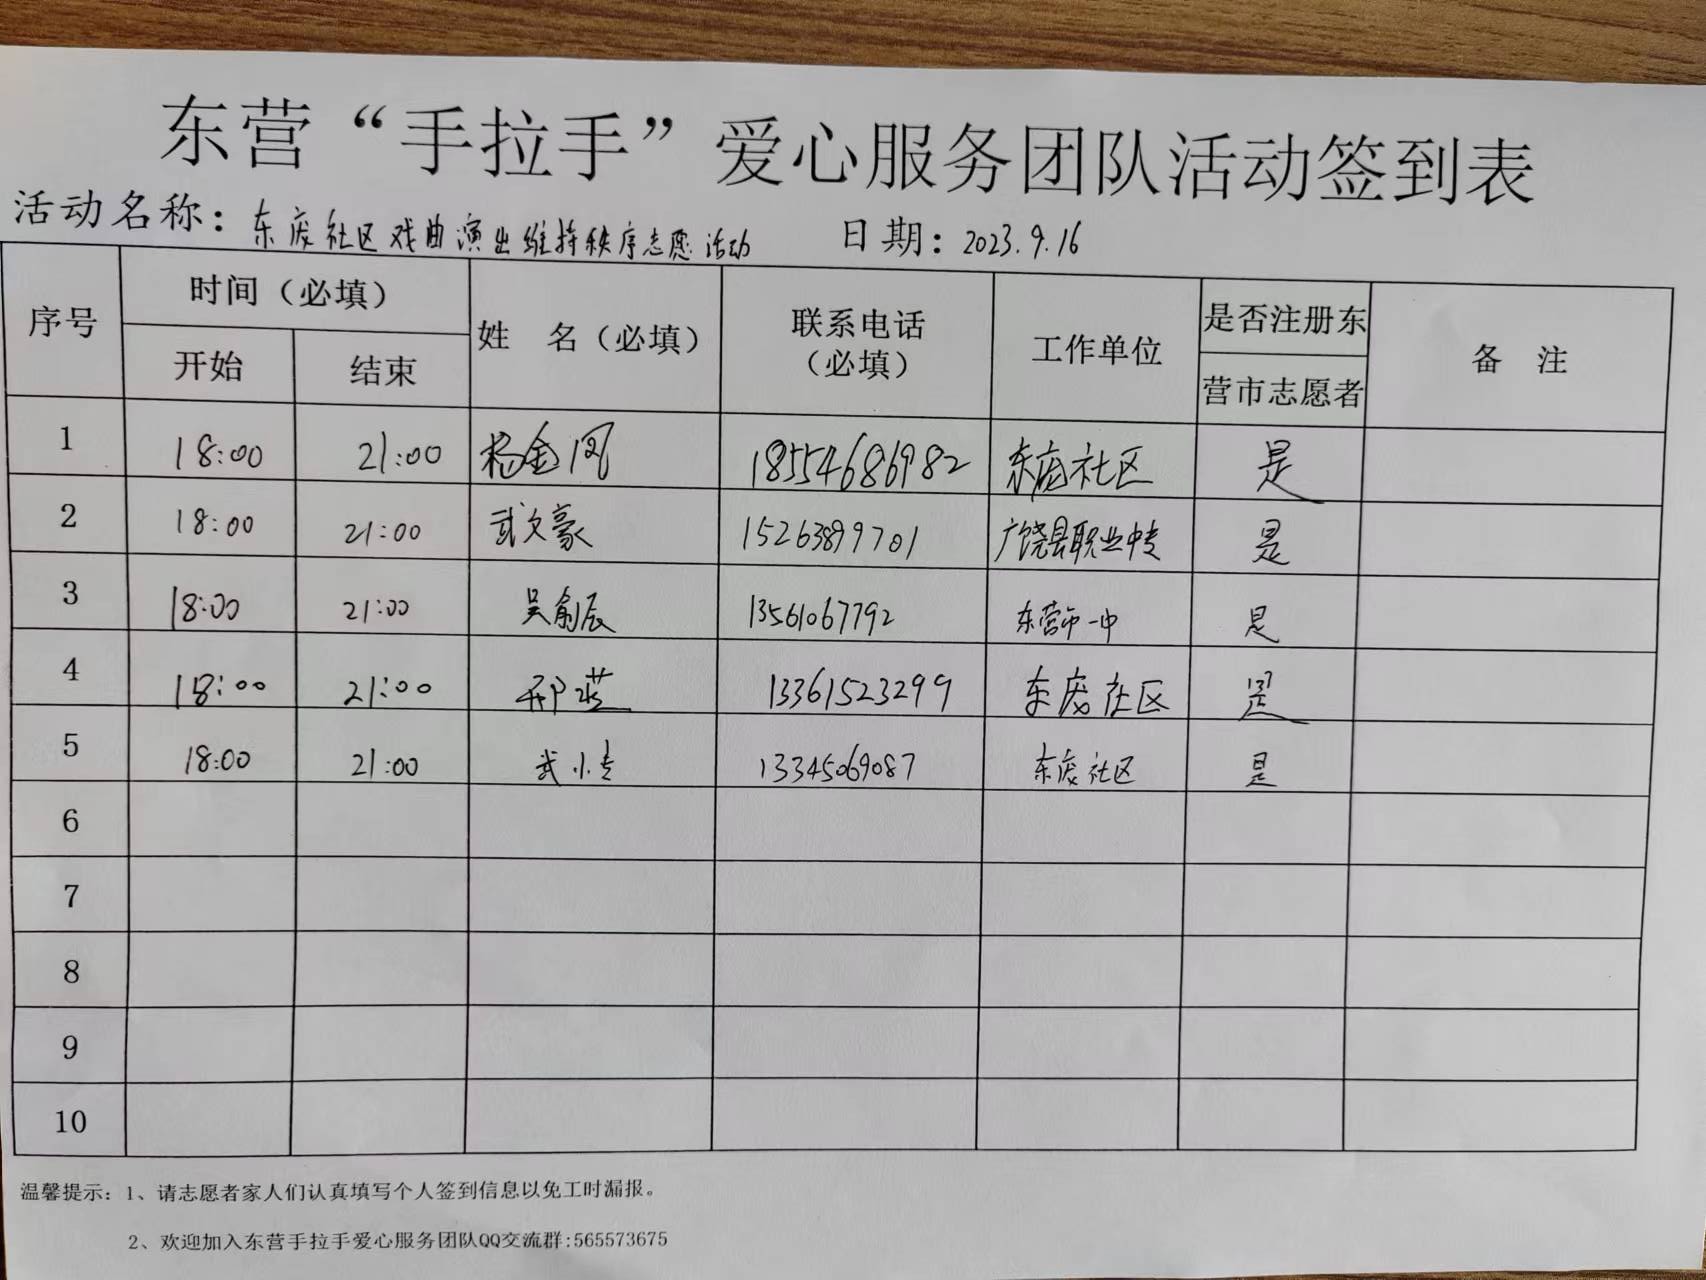 东营“手拉手”爱心服务团队活动签到表
活动名称：东庞社区戏曲演出维持秩序志愿活动 日期：2023.9.16
序号 时间（必填） 姓 名（必填） 联系电话（必填） 工作单位 是否注册东营市志愿者 备 注
开始 结束
1 18:00 21:00 杨金凤 18554686982 东庞社区 是
2 18:00 21:00 武文豪 15263899701 广饶县职业中专 是
3 18:00 21:00 吴俞辰 13561067792 东营市一中 是
4 18:00 21:00 邢 13361523299 东庞社区 是
5 18:00 21:00 武小 13345069087 东庞社区 是
6
7
8
9
10
温馨提示：1、请志愿者家人们认真填写个人签到信息以免工时漏报。
2、欢迎加入东营手拉手爱心服务团队QQ交流群:565573675